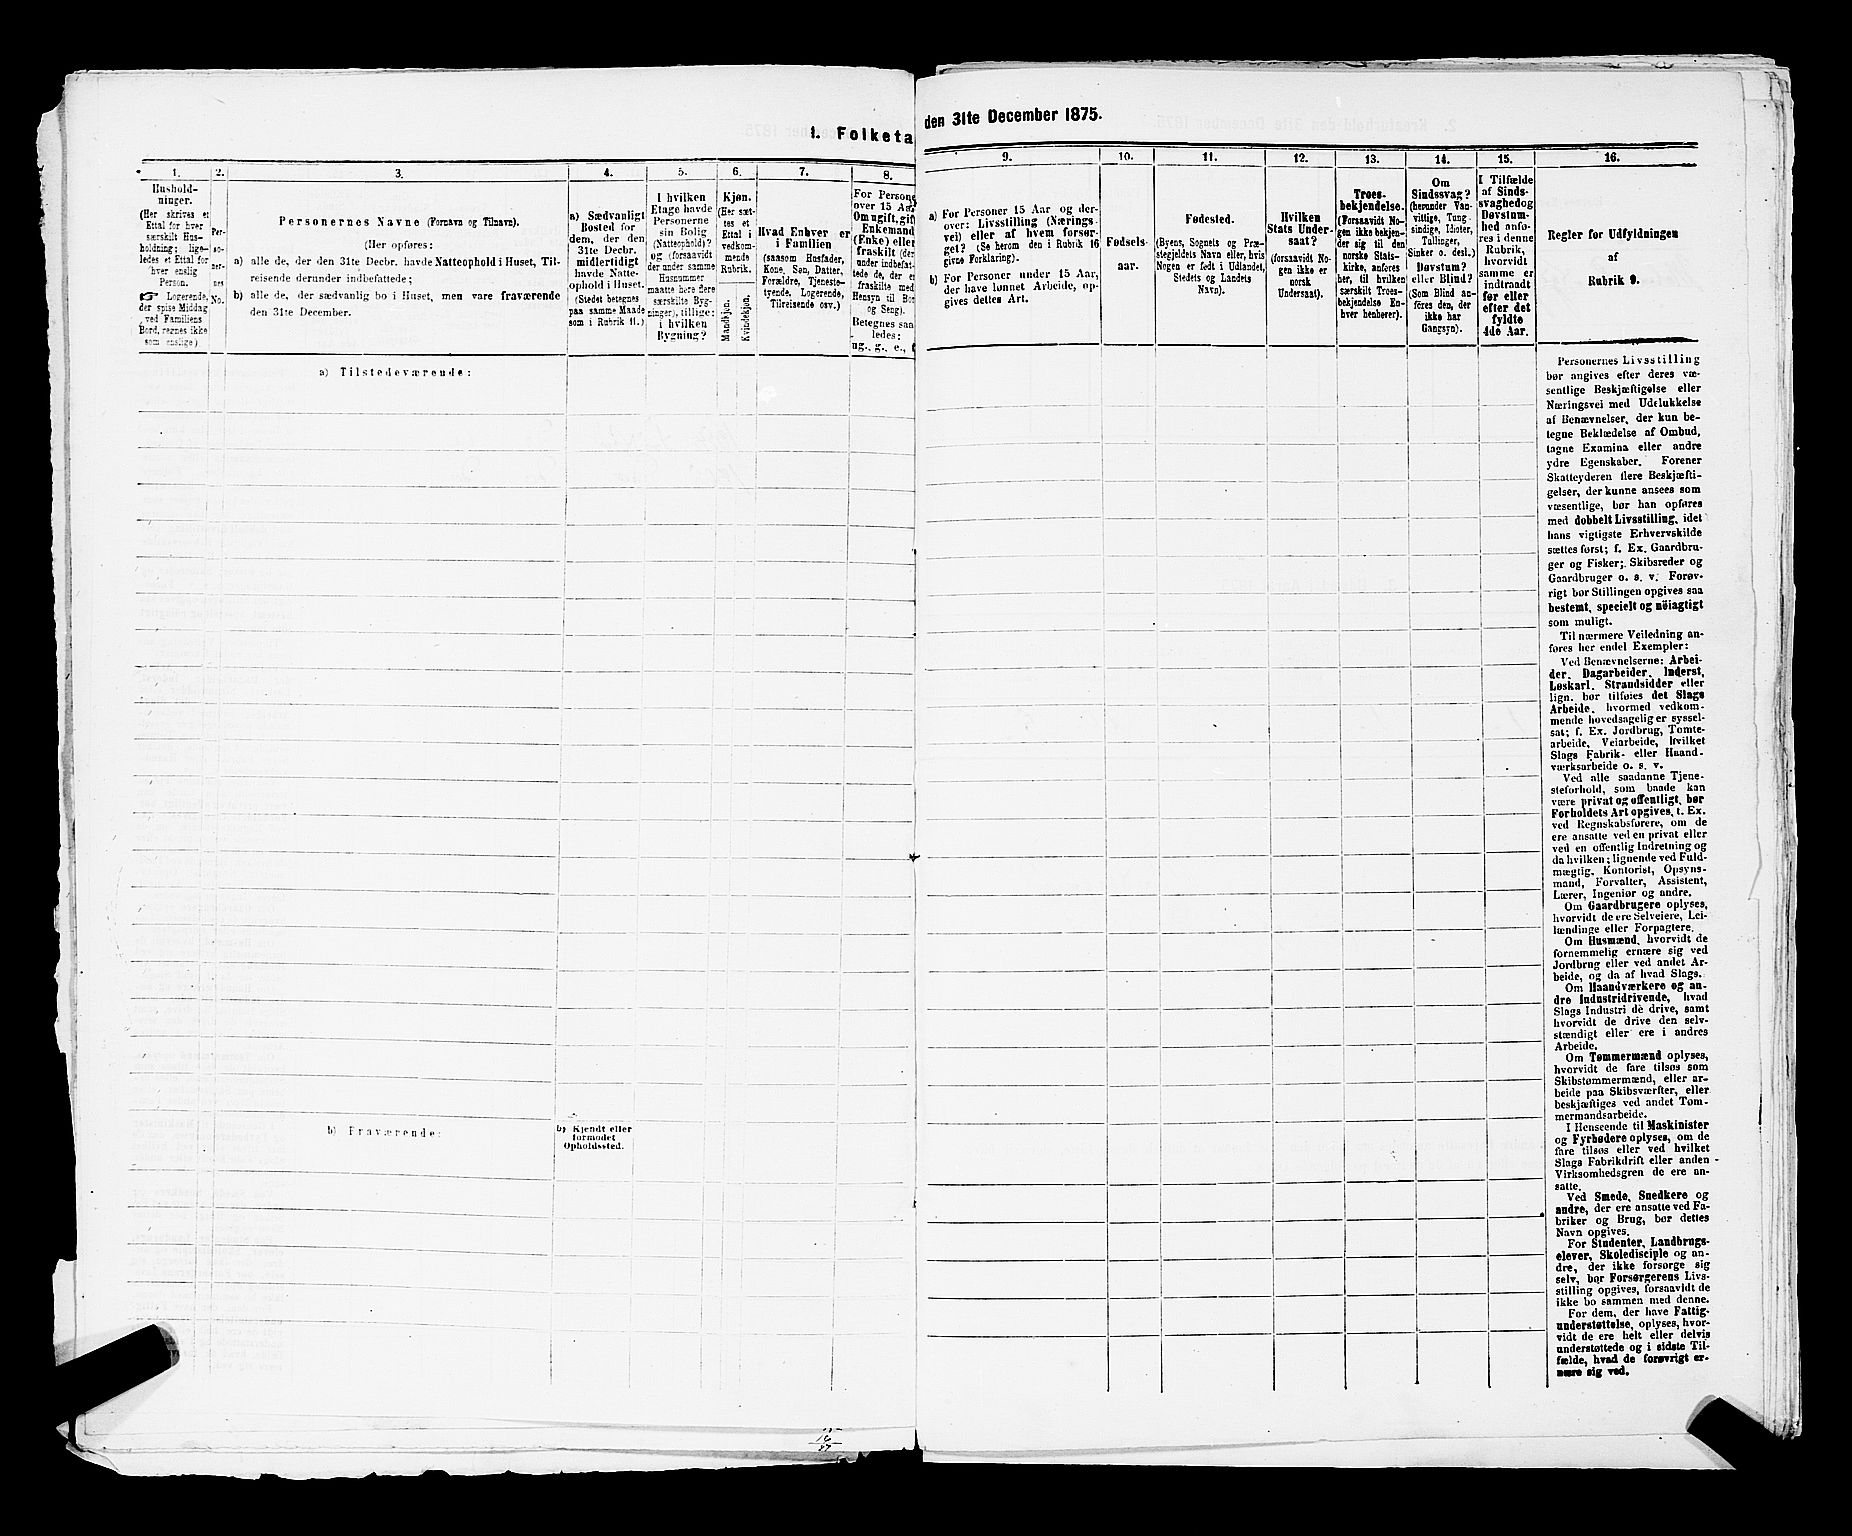 I. Folketa
den 31te December 1875.
1.
2.
3.
4.
5.
6.
7.
8.
9.
10.
11.
12.
13.
14.
15.
16.
Hushold-
ninger.
(Her skrives et
Ettal for hver
særskilt Hus-
holdning; lige-
ledes et Ettal for
hver enslig
Person.
☞ Logerende,
der spise Middag
ved Familiens
Bord, regnes ikke
som enslige).
Per-
so-
ner-
nes
No.
Personernes Navne (Fornavn og Tilnavn).
(Her opføres:
a) alle de, der den 31te Decbr. havde Natteophold i Huset, Til-
reisende derunder indbefattede;
b) alle de, der sædvanlig bo i Huset, men vare fraværende
den 31te December.
a) Sædvanligt
Bosted for
dem, der den
31te Decbr.
midlertidigt
havde Natte-
ophold i Huset.
(Stedet betegnes
paa samme Maade
som i Rubrik 11.)
I hvilken
Etage havde
Personerne
sin Bolig
(Natteophold)?
og (forsaavidt
der under samme
Husnummer
maatte høre flere
særskilte Byg-
ninger), tillige:
i hvilken
Bygning?
Kjøn.
(Her sæt-
tes et
Ettal i
vedkom-
mende
Rubrik.
Mandkjøn.
Kvindekjøn.
Hvad Enhver er
i Familien
(saasom Husfader,
Kone, Søn, Datter,
Forældre, Tjeneste-
tyende, Logerende,
Tilreisende osv.)
For Persone
over 15 Aa
Om ugift, gift
Enkemand
(Enke) eller
fraskilt (der
under indbefat-
tede de, der e
fraskilte med
Hensyn til Bo
og Seng).
Betegnes saa
ledes:
ug., g., e., f
a) For Personer 15 Aar og der-
over: Livsstilling (Nærings-
vei) eller af hvem forsør-
get? (Se herom den i Rubrik 16
givne Forklaring).
b) For Personer under 15 Aar,
der have lønnet Arbeide, op-
gives dettes Art.
Fødsels-
aar.
Fødested.
(Byens, Sognets og Præ-
stegjeldets Navn eller, hvis
Nogen er født i Udlandet,
Stedets og Landets
Navn).
Hvilken
Stats Under-
saat?
(forsaavidt No-
gen ikke er
norsk
Undersaat).
Troes-
bekjendelse.
(Forsaavidt No-
gen ikke bekjen-
der sig til den
norske Stats-
kirke, anføres
her, til hvilken
særskilt Troes-
bekjendelse En-
hver henhører).
Om
Sindssvag?
(herunder Van-
vittige, Tung-
sindige, Idioter,
Tullinger,
Sinker o. desl.)
Døvstum?
eller Blind?
(Som Blind an-
føres den, der
ikke har
Gangsyn).
I Tilfælde
af Sinds-
svaghed og
Døvstum-
hed anfø-
res i denne
Rubrik,
hvorvidt
samme er
indtraadt
før eller
efter det
fyldte
4de Aar.
Regler for Udfyldningen
af
Rubrik 9.
a) Tilstedeværende:
b) Fraværende:
b) Kjendt eller
formodet
Opholdssted.
Personernes Livsstilling
bør angives efter deres væ-
sentlige Beskjæftigelse eller
Næringsvei med Udelukkelse
af Benævnelser, der kun be-
tegne Beklædelse af Ombud,
tagne Examina eller andre
ydre Egenskaber. Forener
Skatteyderen flere Beskjæfti-
gelser, der kunne ansees som
væsentlige, bør han opføres
med dobbelt Livsstilling, idet
hans vigtigste Erhvervskilde
sættes først; f. Ex. Gaardbru-
ger og Fisker; Skibsreder og
Gaardbruger o. s. v. Forøv-
rigt bør Stillingen opgives saa
bestemt, specielt og nöiagtigt
som muligt.
Til nærmere Veiledning an-
føres her endel Exempler:
Ved Benævnelserne: Arbei-
der, Dagarbeider, Inderst,
Løskarl, Strandsidder eller
lign. bør tilføies det Slags
Arbeide, hvormed vedkom-
mende hovedsagelig er syssel-
sat; f. Ex. Jordbrug, Tomte-
arbeide, Veiarbeide, hvilket
Slags Fabrik- eller Haand-
værksarbeide o. s. v.
Ved alle saadanne Tjene-
steforhold, som baade kan
være privat og offentligt, bør
Forholdets Art opgives, t. Ex.
ved Regnskabsførere, om de
ere ansatte ved en privat eller
ved en offentlig Indretning og
da hvilken; lignende ved Fuld-
mægtig, Kontorist, Opsyns-
mand, Forvalter, Assistent,
Lærer, Ingeniør og andre.
Om Gaardbrugere oplyses,
hvorvidt de ere Selveiere, Lei-
lændinge eller Forpagtere.
Om Husmænd, hvorvidt de
fornemmelig ernære sig ved
Jordbrug eller ved andet Ar-
beide, og da af hvad Slags.
Om Haandværkere og an-
dre Industridrivende, hvad
Slags Industri de drive, samt
hvorvidt de drive den selv-
stændigt eller ere i andres
Arbeide.
Om Tømmermænd oplyses,
hvorvidt de fare tilsøs som
Skibstømmermænd, eller ar-
beide paa Skibsværfter, eller
beskjæftiges ved andet Tøm-
mermandsarbeide.
I Henseende til Maskinister
og Fyrbødere oplyses, om de
fare tilsøs eller ved hvilket
Slags Fabrikdrift eller anden
Virksomhedsgren de ere an-
satte.
Ved Smede, Snedkere og
andre, der ere ansatte ved Fa-
briker og Brug, bør dettes
Navn opgives.
For Studenter, Landbrugs-
elever, Skoledisciple og an-
dre, der ikke forsørge sig
selv, bør Forsørgerens Livs-
stilling opgives, forsaavidt de
ikke bo sammen med denne.
For dem, der have Fattig-
understøttelse, oplyses, hvor-
vidt de ere helt eller delvis
understøttede og i sidste Til-
fælde, hvad de forøvrigt er-
nære sig ved.